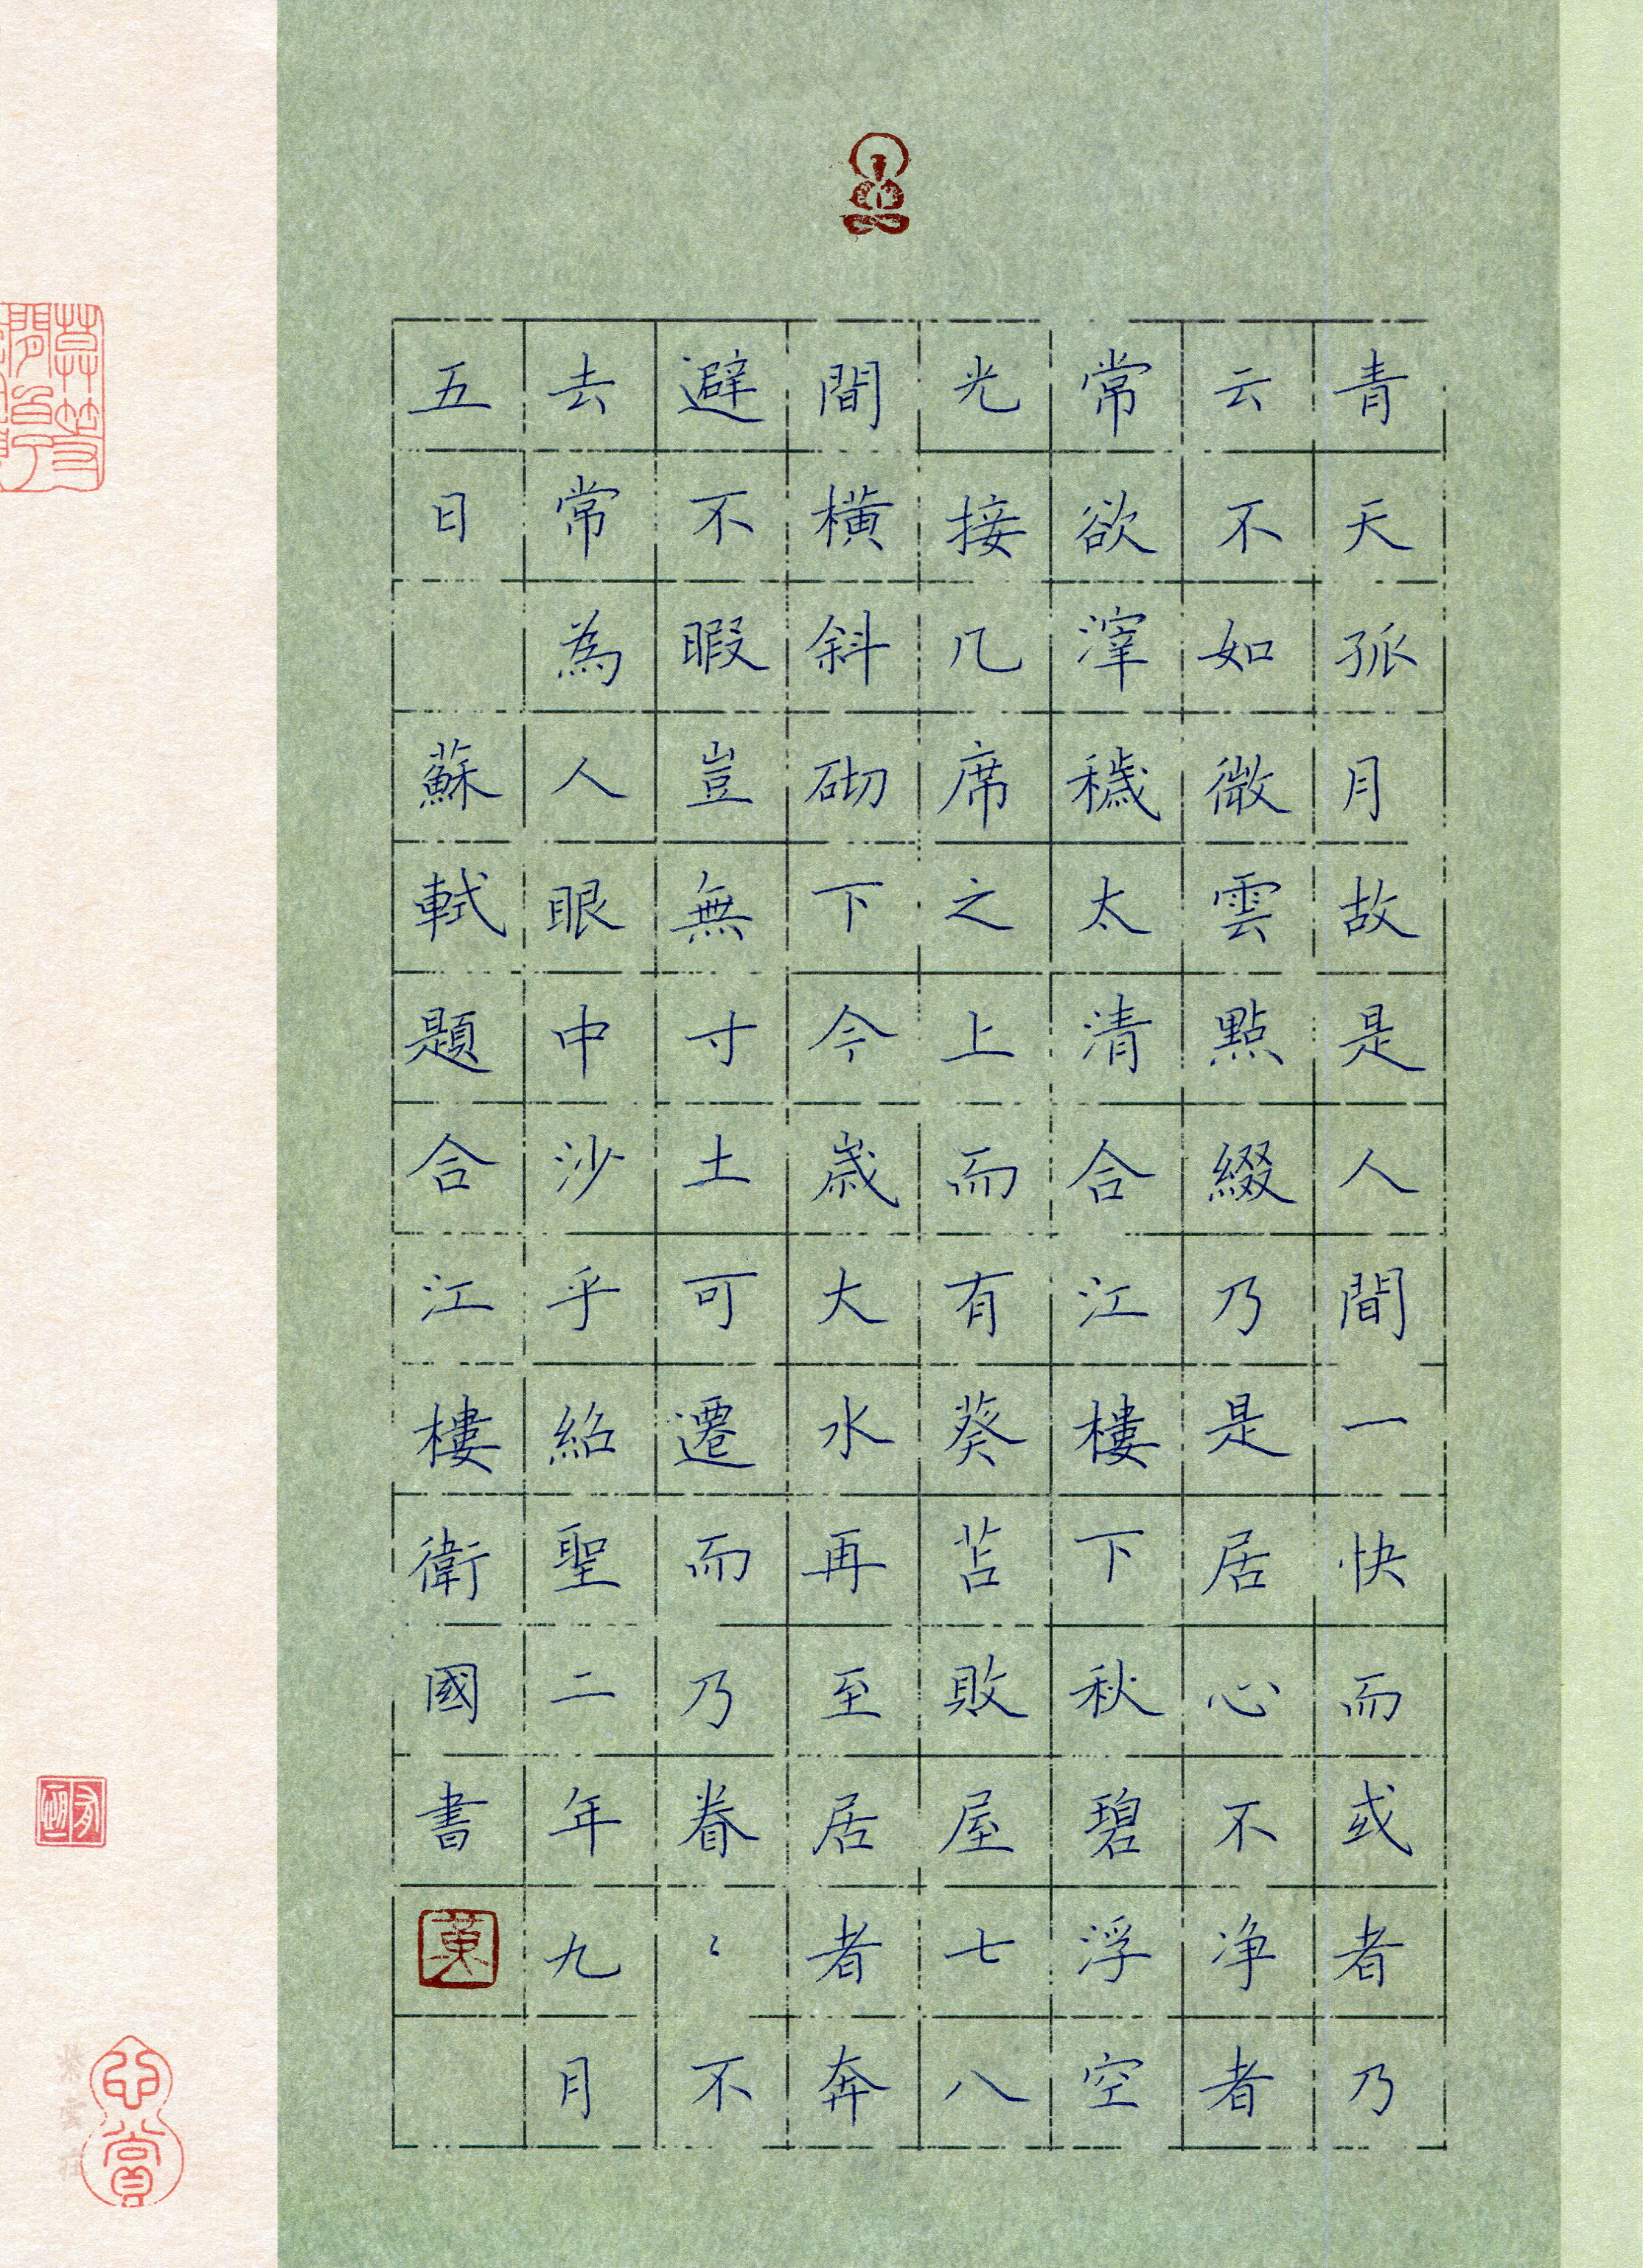 青天孤月故是人間一快而或者乃
云不如微雲點綴乃是居心不净者
常欲滓穢太清合江樓下秋碧浮空
光接几席之上而有葵苫敗屋七八
間橫斜砌下今歲大水再至居者奔
避不暇豈無寸土可遷而乃眷〻不
去常為人眼中沙乎紹聖二年九月
五日 蘇軾題合江樓 衛國書